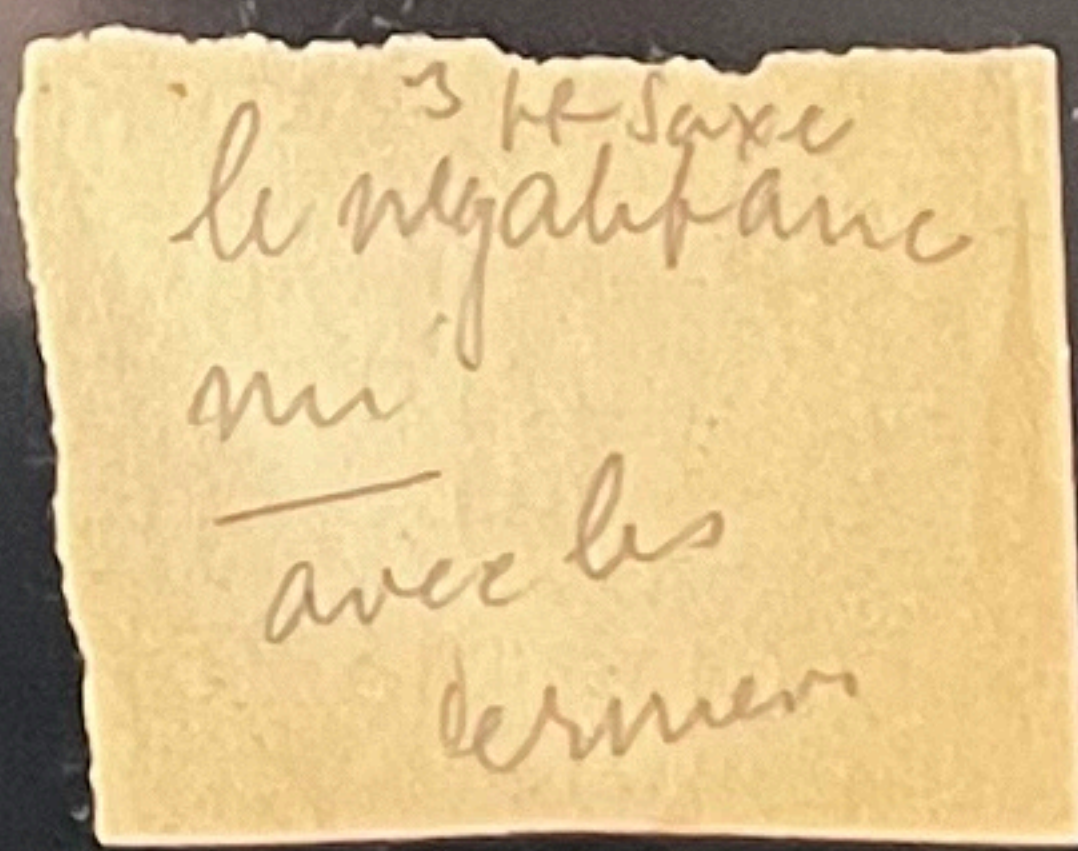 3 pt Saxe
le négatif avec
nu
avec les
derniers